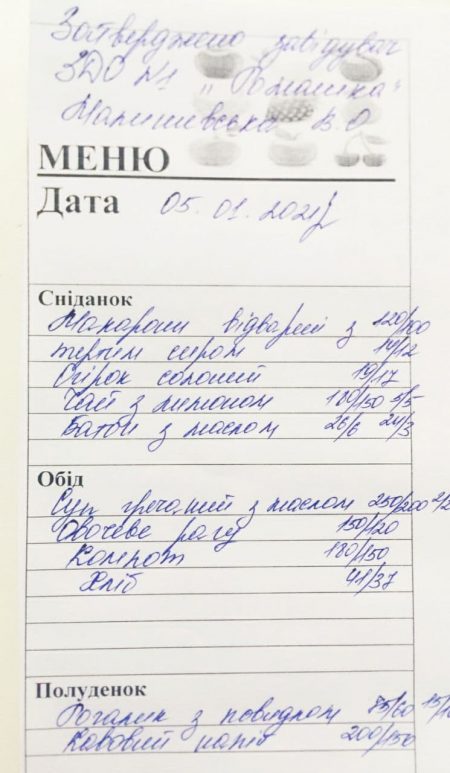 Затверджено завідувач
ЗДО №1 "Ромашка"
Малишівська В.О
МЕНЮ
Дата 05.01.2021р
Сніданок
Макарони відварені з 120/100
тертим сиром 14/12
Огірок солоний 19/17
Чай з лимоном 180/150 5/5
Батон з маслом 26/6 24/3
Обід
Суп гречаний з маслом 250/200 2/2
Овочеве рагу 150/120
Компот 180/150
Хліб 41/37
Полуденок
Рогалик з повидлом 85/60
Кавовий напій 200/150